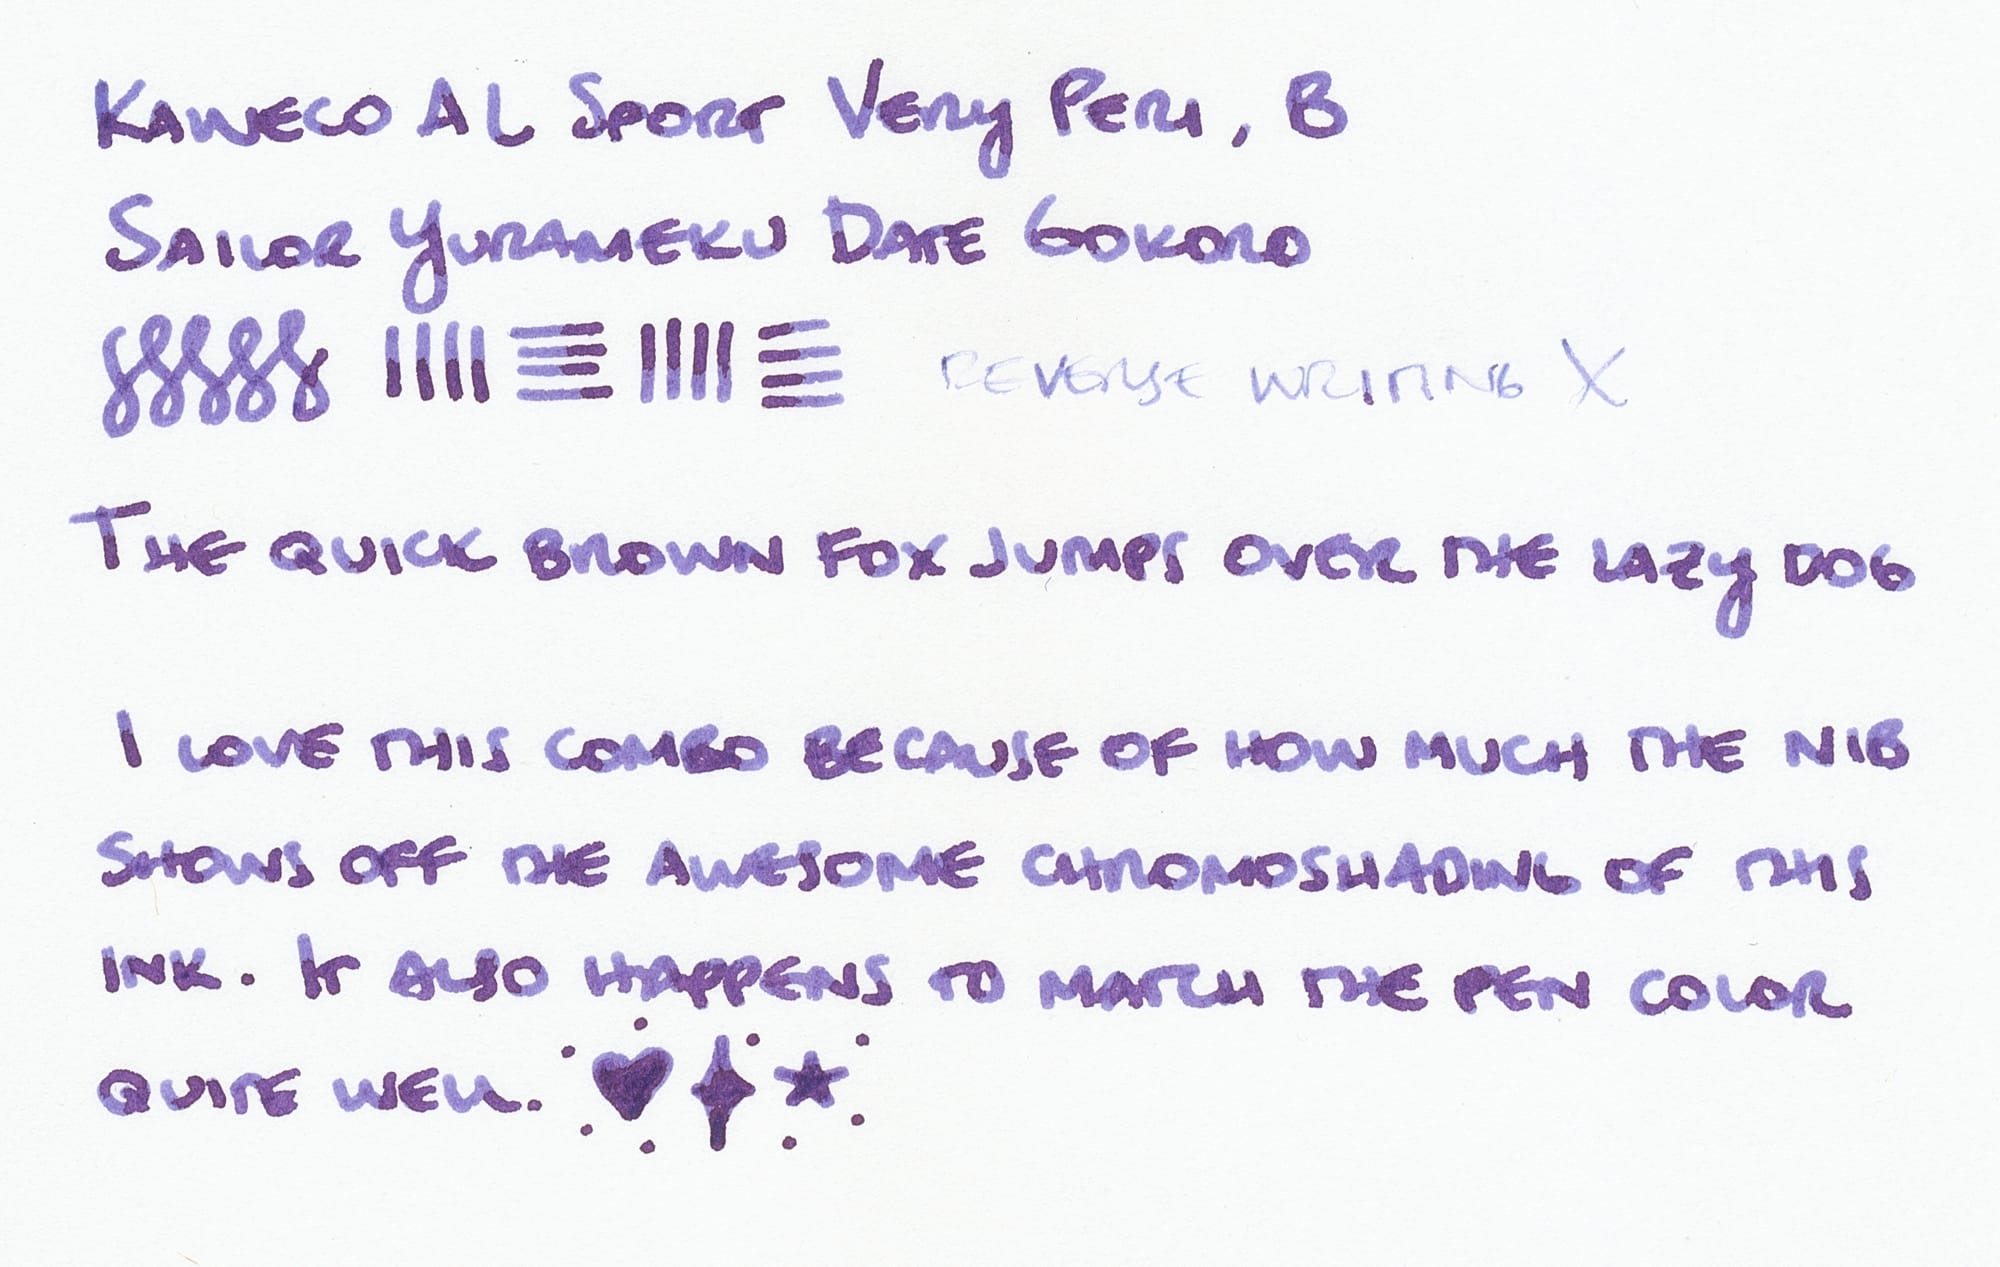 Kaweco AL Sport Very Peri, B
Sailor Yurameku Date Gokoro
Reverse writing X
The quick brown fox jumps over the lazy dog
I love this combo because of how much the nib
shows off the awesome chromoshading of this
ink. It also happens to match the pen color
quite well.